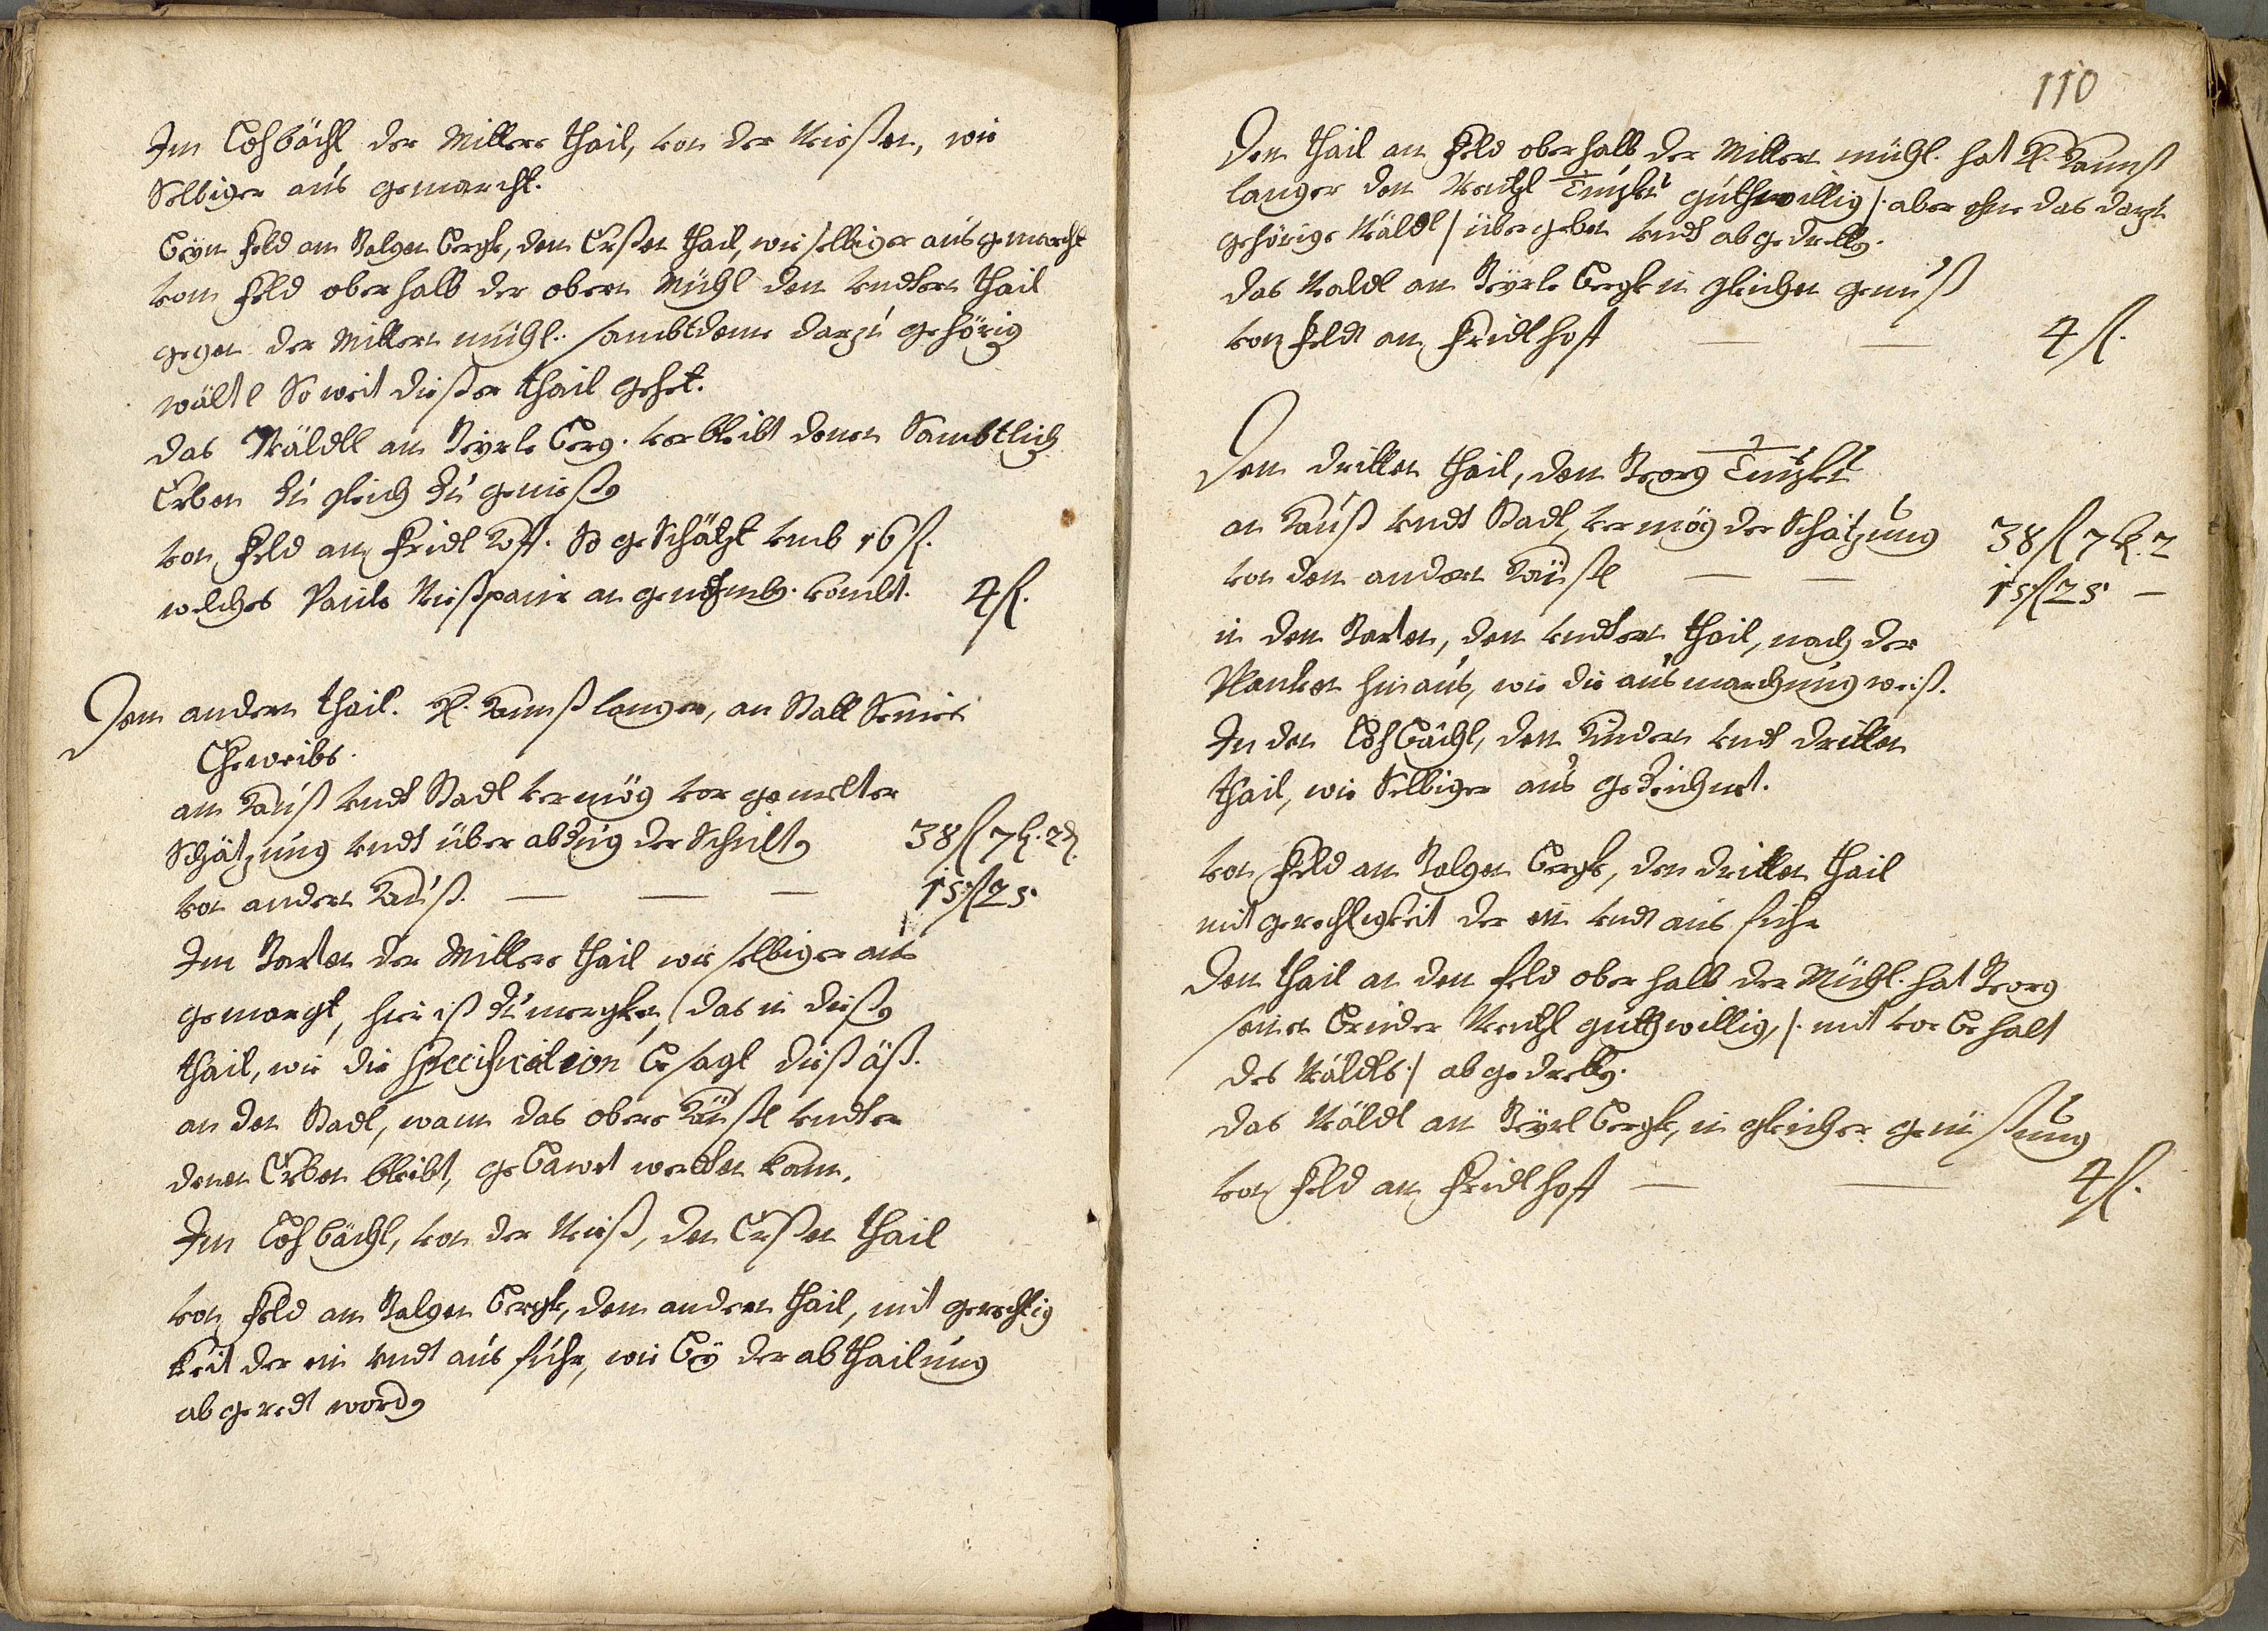 Im Lohbächl der Mittere thail, von der Wießen, wie
Selbiger aus gemarcht.
Beÿm Feld am Galgen Bergk, den Ersten thail, wie selbiger ausgemarcht
vom Feld oberhalb der obern Mühl den undtern thail
gegen der Mittern mühl. sambt dem darzu gehörig
wältl So weit dießer thail gehet.
das Wäldl am Geÿrls Berg. verbleibt denen Sambtlich
Erben Zu gleich Zu genieß
von Feld am Fridlhoff. So geschätzt umb 16 fl.
welches Pauls an kombt. 4 fl.
Dem andern thail. H. Hannß langer, an Statt Seines
Eheweibs.
am Hauß undt Stadl vermög vor gemelter
Schätzung undt über abzug der Schult 38 fl 7 k. 2 d.
von andern Hauß. — — — 15 fl 25
Im Garten der Mittere thail wie selbiger aus
gemargt, hier ist Zu mergken, das in dieß
thail, wie die Specification besagt
an den Stadl, wann das obere Häußl undter
denen Erben bleibt, gebawet werden kann.
Im Lohbächl, von der Wieß, den Ersten thail
von Feld am Galgen Bergk, den andern thail, mit gerechtig
keit der ein undt aus fuhr, wie beÿ der abthailung
abgeredt word
110
Den thail am Feld oberhalb der Mittern mühl. hat H. Hannß
langer dem Wentzl guthwillig /. aber ohne das darzu
gehörige Wäldl / übergeben undt abgedrett.
das Waldl am Geÿrls Bergk in gleichen genuß
von Feldt am Fridlhoff — — 4 fl.
Dem dritten thail, dem Georg
an Hauß undt Stadl, vermög der Schätzung 38 fl 7 k. 2
von dem andern Häußl — — 15 fl 25 —
in dem Garten, den undtern thail, nach der
Planken hinaus, wie die ausmarchung weiß.
In den Lohbächl, den hindern undt dritten
thail, wie Selbiger aus gezeichnet.
von Feld am Galgen Bergk, den dritten thail
mit gerechtigkeit der ein undt aus fuhr
Den thail an dem feld oberhalb der Mühl. hat Georg
seinen Bruder Wentzl guthwillig, /. mit vor behalt
des Wäldls ./ abgedrett.
das Wäldl am Geÿrl Bergk, in gleicher genießung
von Feld am Fridlhoff — — 4 fl.